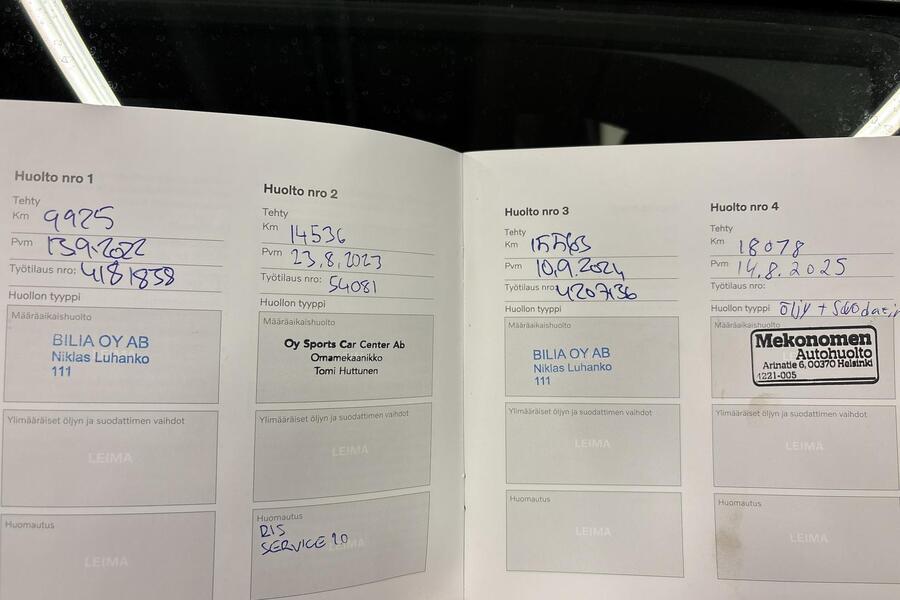 Huolto nro 1
Tehty
Km 9925
Pvm 13.9.2022
Työtilaus nro: 4181838
Huollon tyyppi
Määräaikaishuolto
BILIA OY AB
Niklas Luhanko
111
Ylimääräiset öljyn ja suodattimen vaihdot
LEIMA
Huomautus
LEIMA
Huolto nro 2
Tehty
Km 14536
Pvm 23.8.2023
Työtilaus nro: 54081
Huollon tyyppi
Määräaikaishuolto
Oy Sports Car Center Ab
Omamekaanikko
Tomi Huttunen
Ylimääräiset öljyn ja suodattimen vaihdot
LEIMA
Huomautus
SERVICE
LEIMA
Huolto nro 3
Tehty
Km 15563
Pvm 10.9.2024
Työtilaus nro: 4207136
Huollon tyyppi
Määräaikaishuolto
BILIA OY AB
Niklas Luhanko
111
Ylimääräiset öljyn ja suodattimen vaihdot
LEIMA
Huomautus
LEIMA
Huolto nro 4
Tehty
Km 18078
Pvm 14.8.2025
Työtilaus nro:
Huollon tyyppi öljy +
Määräaikaishuolto
Mekonomen
Autohuolto
Arinatie 6, 00370 Helsinki
1221-005
Ylimääräiset öljyn ja suodattimen vaihdot
LEIMA
Huomautus
LEIMA